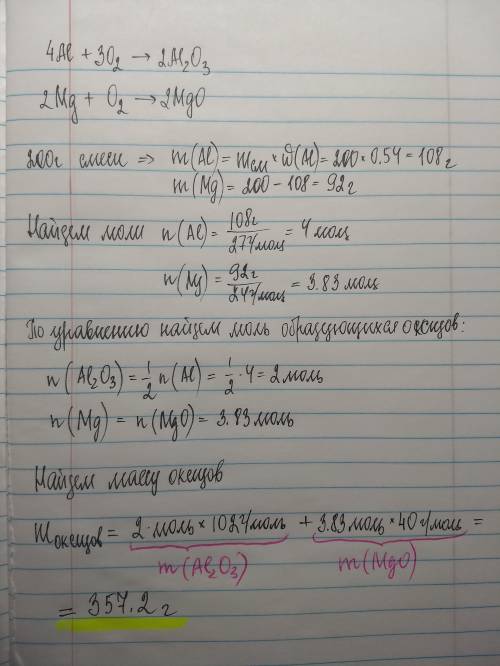 4Al + 3O₂ → 2Al₂O₃
2Mg + O₂ → 2MgO
200г смеси => m(Al) = mсм × ω(Al) = 200 × 0.54 = 108 г
m(Mg) = 200 - 108 = 92 г
Найдем моли n(Al) = 108г / 27г/моль = 4 моль
n(Mg) = 92г / 24г/моль = 3.83 моль
По уравнению найдем моль образующихся оксидов:
n(Al₂O₃) = 1/2 n(Al) = 1/2 · 4 = 2 моль
n(Mg) = n(MgO) = 3.83 моль
Найдем массу оксидов
mоксидов = 2 моль × 102г/моль + 3.83 моль × 40 г/моль =
m(Al₂O₃) m(MgO)
= 357.2 г